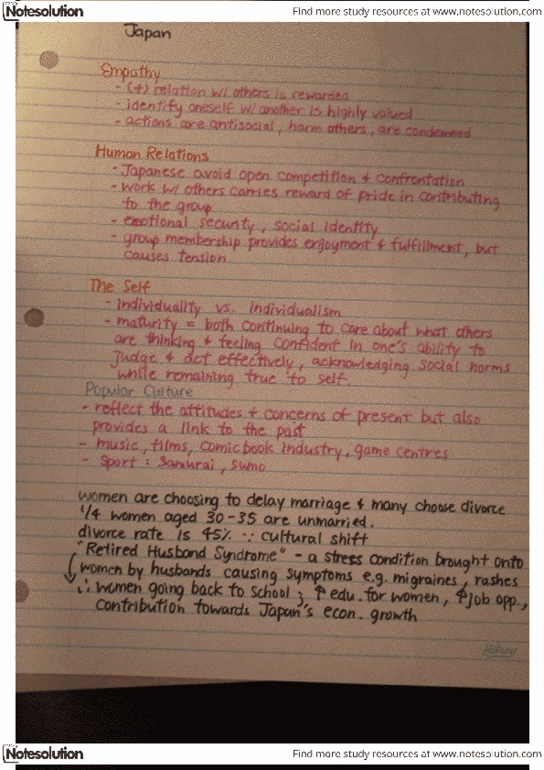 Notesolution
Find more study resources at www.notesolution.com
Japan
Empathy
- (+) relation w/ others is rewarded
- identify oneself w/ another is highly valued
- actions are antisocial, harm others, are condemned
Human Relations
- Japanese avoid open competition & confrontation
- work w/ others carries reward of pride in contributing
to the group
- emotional security, social identity
- group membership provides enjoyment & fulfillment, but
causes tension
The Self
- Individuality vs. Individualism
- maturity = both continuing to care about what others
are thinking & feeling confident in one's ability to
judge & act effectively, acknowledging social norms
while remaining true to self.
Popular Culture
- reflect the attitudes & concerns of present but also
provides a link to the past
- music, films, comic book industry, game centres
- Sport: Samurai, Sumo
women are choosing to delay marriage & many choose divorce
1/4 women aged 30-35 are unmarried.
divorce rate is 45% ∵ cultural shift
"Retired Husband Syndrome" - a stress condition brought onto
women by husbands causing symptoms e.g. migraines, rashes
∴ women going back to school; ↑ edu. for women, ↑ job opp.,
contribution towards Japan's econ. growth
Notesolution
Find more study resources at www.notesolution.com